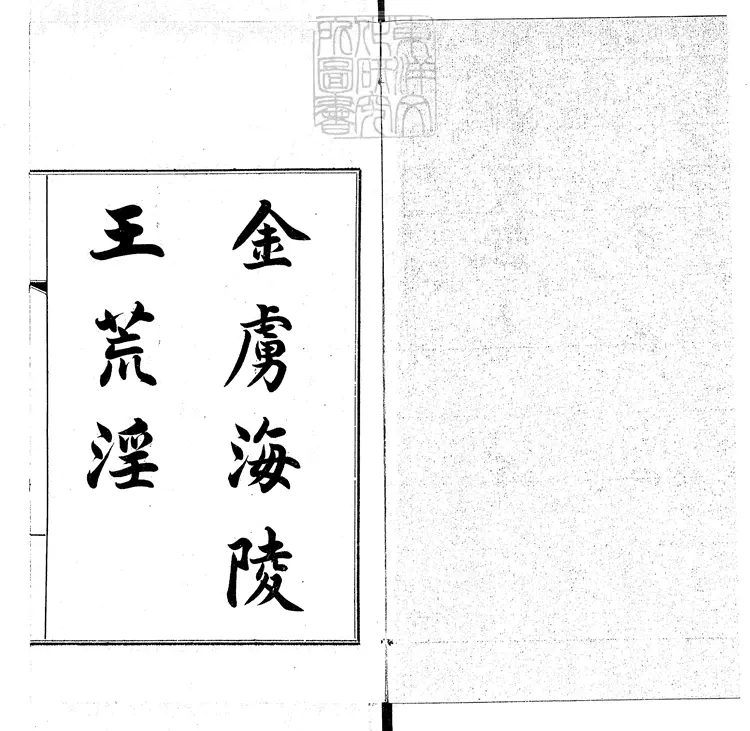 金虜海陵
王荒淫
東洋文
化研究
所圖書